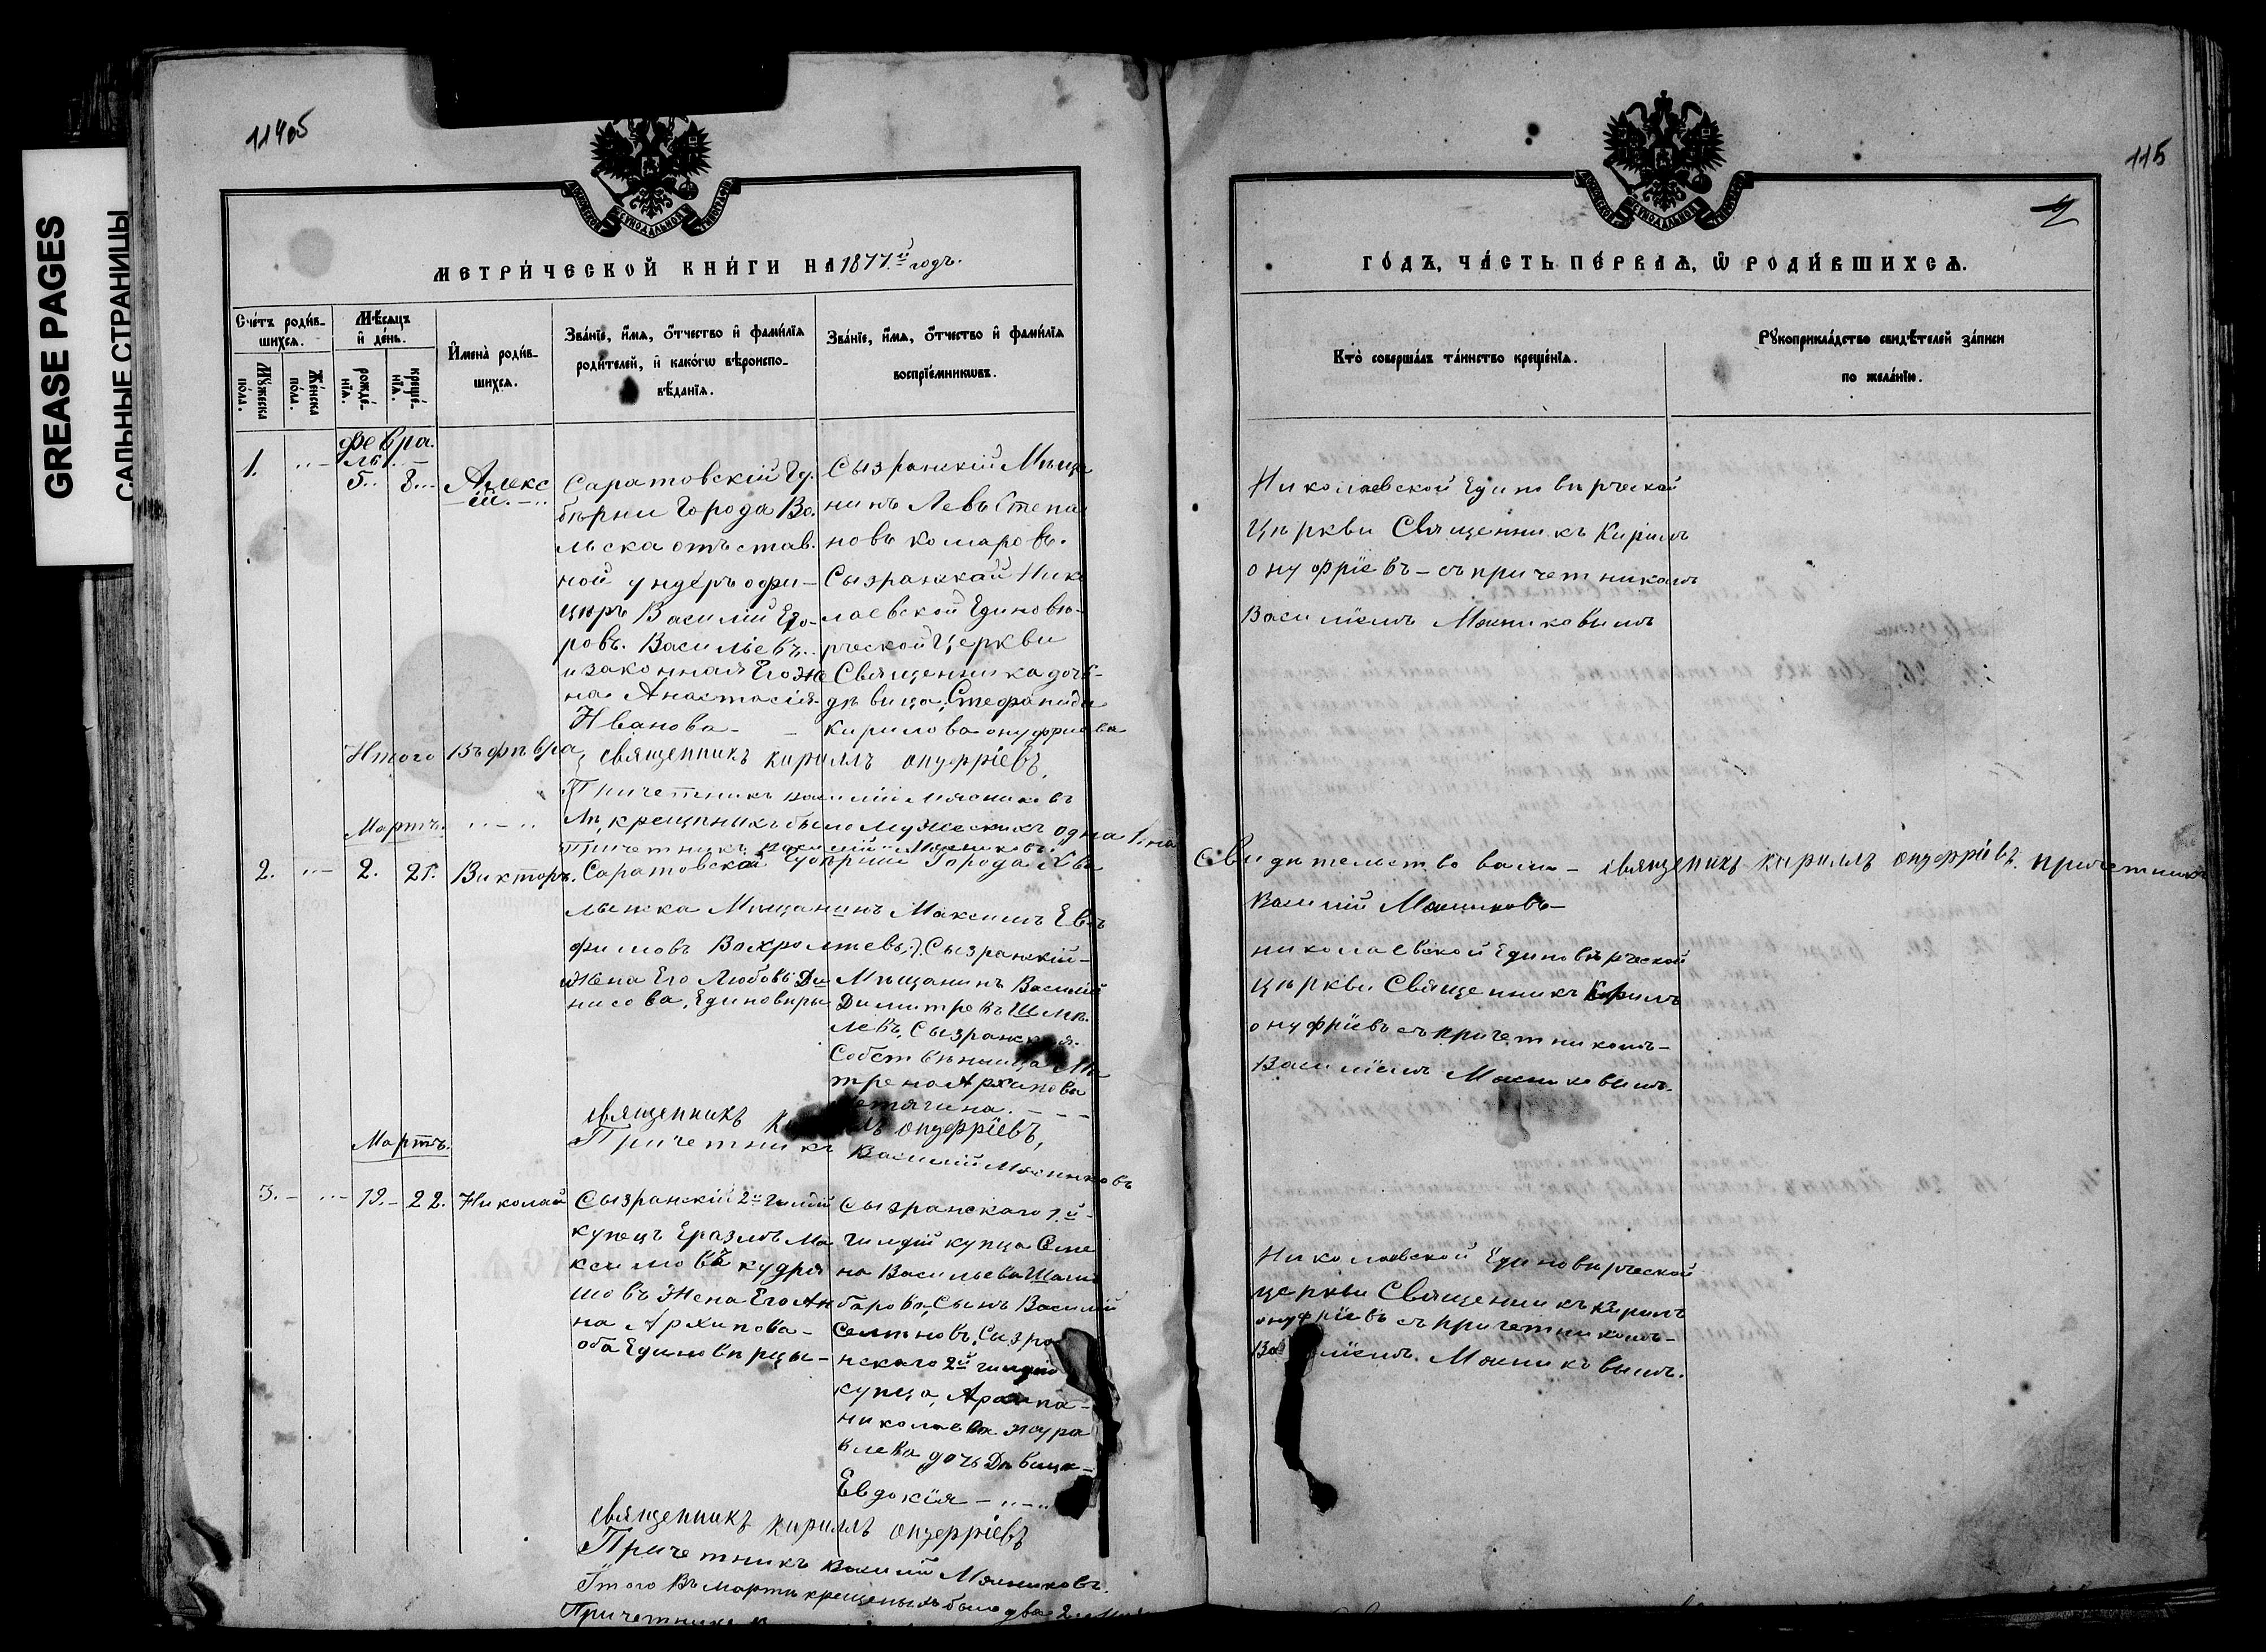 GREASE PAGES
САЛЬНЫЕ СТРАНИЦЫ
115
МЕТРИ́ЧЕСКОЙ КНИ́ГИ НА 1877.й годъ.
Сче́тъ роди́в-
шихсѧ.
Мꙋ́жеска
пола.
Же́нска
пола.
Мѣ́сѧцъ
и҆ де́нь.
рожде́-
нїѧ.
креще́-
нїѧ.
И҆мена̀ роди́в-
шихсѧ.
Зва́нїе, и҆́мѧ, ѻ҆́тчество и҆ фами́лїѧ
роди́телей, и҆ како́гѡ вѣроиспо-
вѣ́данїѧ.
Зва́нїе, и҆́мѧ, ѻ҆́тчество и҆ фами́лїѧ
воспрїе́мникѡвъ.
Февра.
ль
1.
5..
8...
Алекс
ій.
Саратовскій Гу.
бѣрни Города Во.
льска отъстав.
ной ундеръ офи-
цѣръ Василій Его-
ровъ. Васильевъ..
и законная Его же
на Анастасія.
Иванова-
Сызранскій Мѣща
нинъ Левъ Степа
новъ комаровъ.
Сызранскай Нико
лаевской Единовѣ-
рческой Церкви
Священника дочь-
дѣвица, Стефанида
Кирилова онуфриева
Итого Въ фѣвра
священникъ кириллъ онуфріевъ,
Причетникъ василій Мясниковъ
лѣ, крещѣникъ было мужескихъ одна 1.
Причетникъ василій Мясниковъ
Мартъ.
2.
2.
21.
Викторъ.
Саратовской Губѣрніи Города Хва
лынска Мѣщанинъ Максимъ Ев
фимовъ Вахромѣевъ,
Жена Его Любовь Ди
нисова, Единовѣры
Сызранскій-
Мѣщанинъ Василій
Димитревъ Шмѣ.
левъ, Сызранская.
Собствѣнница Ма
трена Архипова
священникъ онуфріевъ,
Причетникъ Василій Мясниковъ
Мартъ.
3.
19.
22.
Николай
Сызранскій 2й гилдіи
купецъ Еразмъ Ма
ксимовъ кудря
шовъ Жена Его Ан
на Архипова-
оба Единовѣрцы-
Сызранскаго 1.й
Гилдіи купца Семе
на Васильева Шали
барова, Сынъ Василій
Семѣновъ, Сызра
нскаго 2й гилдіи
купца, Архипа-
николаева жура
влева дочь Дѣвица-
Евдокія
священникъ кириллъ онуфріевъ
Причетникъ Василій Мясниковъ.
Итого Въ мартѣ крещеныхъ было два 2
Причетникъ
115
ГО́ДЪ, ЧА́СТЬ ПЕ́РВАѦ, Ѡ҆ РОДИ́ВШИХСѦ.
Кто̀ соверша́лъ та́инство креще́нїѧ.
Рꙋкоприкла́дство свидѣ́телей за́писи
по жела́нїю.
Николаевской Единовѣрческой
Цѣркви Священникъ Кирилъ
онуфріевъ - съ причетникомъ
Василіемъ Мясниковымъ
свидѣтельствовали - священникъ кириллъ онуфріевъ. причетникъ
Василій Мясниковъ-
николаевской Единовѣрческой
Цѣркви Священникъ Кирилъ
онуфріевъ съ причетникомъ-
Василіемъ Мясниковымъ.
Николаевской Единовѣрческой
церкви Священникъ кирилъ
онуфріевъ съ причетникомъ-
Василіемъ. Мясниковымъ.